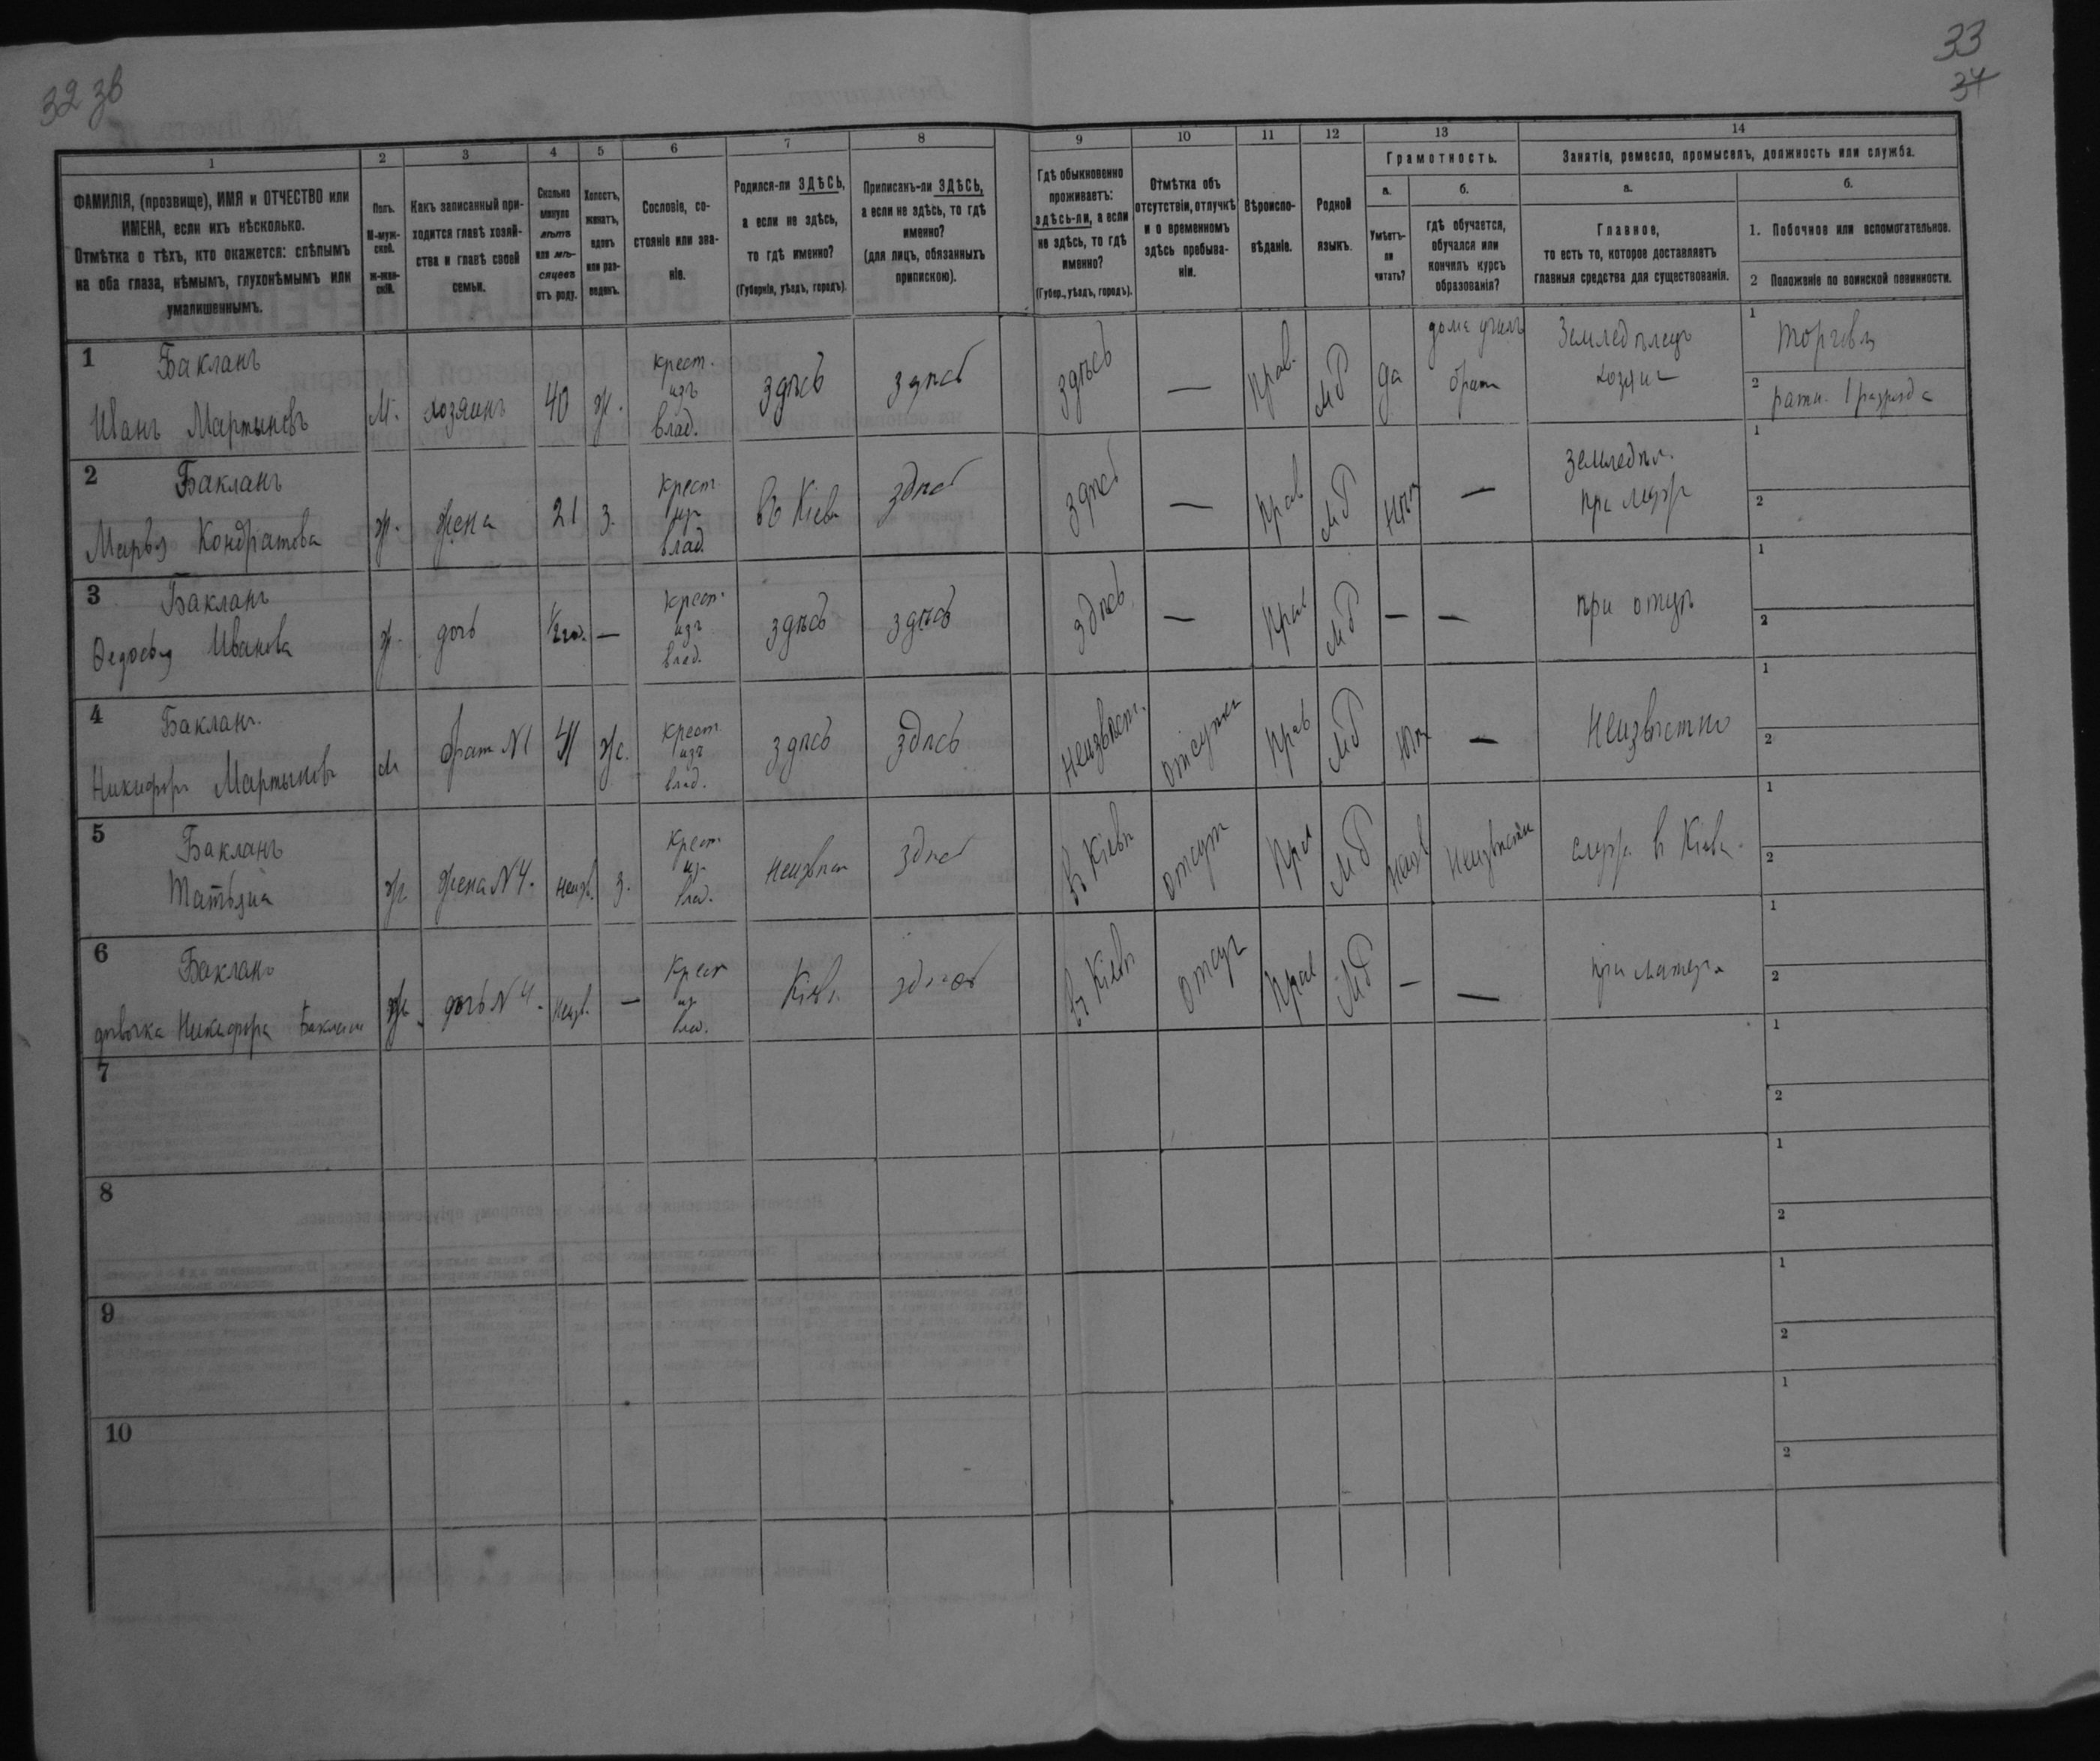 32 зв
33
34
1
2
3
4
5
6
7
8
9
10
11
12
13
14
ФАМИЛІЯ, (прозвище), ИМЯ и ОТЧЕСТВО или
ИМЕНА, если ихъ нѣсколько.
Отмѣтка о тѣхъ, кто окажется: слѣпымъ
на оба глаза, нѣмымъ, глухонѣмымъ или
умалишеннымъ.
Полъ.
М-муж-
ской.
ж-жен-
скій.
Какъ записанный при-
ходится главѣ хозяй-
ства и главѣ своей
семьи.
Сколько
минуло
лѣтъ
или мѣ-
сяцевъ
отъ роду.
Холостъ,
женатъ,
вдовъ
или раз-
веденъ.
Сословіе, со-
стояніе или зва-
ніе.
Родился-ли ЗДѢСЬ,
а если не здѣсь,
то гдѣ именно?
(Губернія, уѣздъ, городъ).
Приписанъ-ли ЗДѢСЬ,
а если не здѣсь, то гдѣ
именно?
(для лицъ, обязанныхъ
припискою).
Гдѣ обыкновенно
проживаетъ:
здѣсь-ли, а если
не здѣсь, то гдѣ
именно?
(Губер., уѣздъ, городъ).
Отмѣтка объ
отсутствіи, отлучкѣ
и о временномъ
здѣсь пребыва-
ніи.
Вѣроиспо-
вѣданіе.
Родной
языкъ.
Грамотность.
а.
Умѣетъ-
ли
читать?
б.
гдѣ обучается,
обучался или
кончилъ курсъ
образованія?
Занятіе, ремесло, промыселъ, должность или служба.
а.
Главное,
то есть то, которое доставляетъ
главныя средства для существованія.
б.
1. Побочное или вспомогательное.
2 Положеніе по воинской повинности.
1 Бакланъ
Иванъ Мартыновъ
м. хозяинъ 40 ж. крест. изъ влад. здѣсь здѣсь здѣсь — Прав. МР да
брат
Земледѣлецъ
хозяинъ
1 торговля
2 ратн. 1 разряда
2 Бакланъ
Марья Кондратова
ж. жена 21 з. крест. изъ влад. въ Кіевѣ здѣсь здѣсь — Прав МР нѣтъ —
земледѣл.
при мужѣ
1
2
3 Бакланъ
Ѳедосья Иванова
ж. дочь 1/2 год. — крест. изъ влад. здѣсь здѣсь здѣсь — Прав МР — —
при отцѣ
1
2
4 Бакланъ
Никифоръ Мартыновъ
м братъ N1 ж. крест. изъ влад. здѣсь здѣсь неизвѣст. Прав МР нѣтъ —
Неизвѣстно
1
2
5 Бакланъ
Татьяна
ж. жена N4. неизв. з. крест. из. влад. неизвѣстн здѣсь въ Кіевѣ отсут Прав МР неизв Неизвѣстно
служ. в Кіевѣ.
1
2
6 Бакланъ
дѣвочка Никифора Баклана
ж. дочь N4. Неизв. — Крест из. влад. Кіевѣ здѣсь въ Кіевѣ отсут Прав МР — —
при матери
1
2
7
1
2
8
1
2
9
1
2
10
1
2